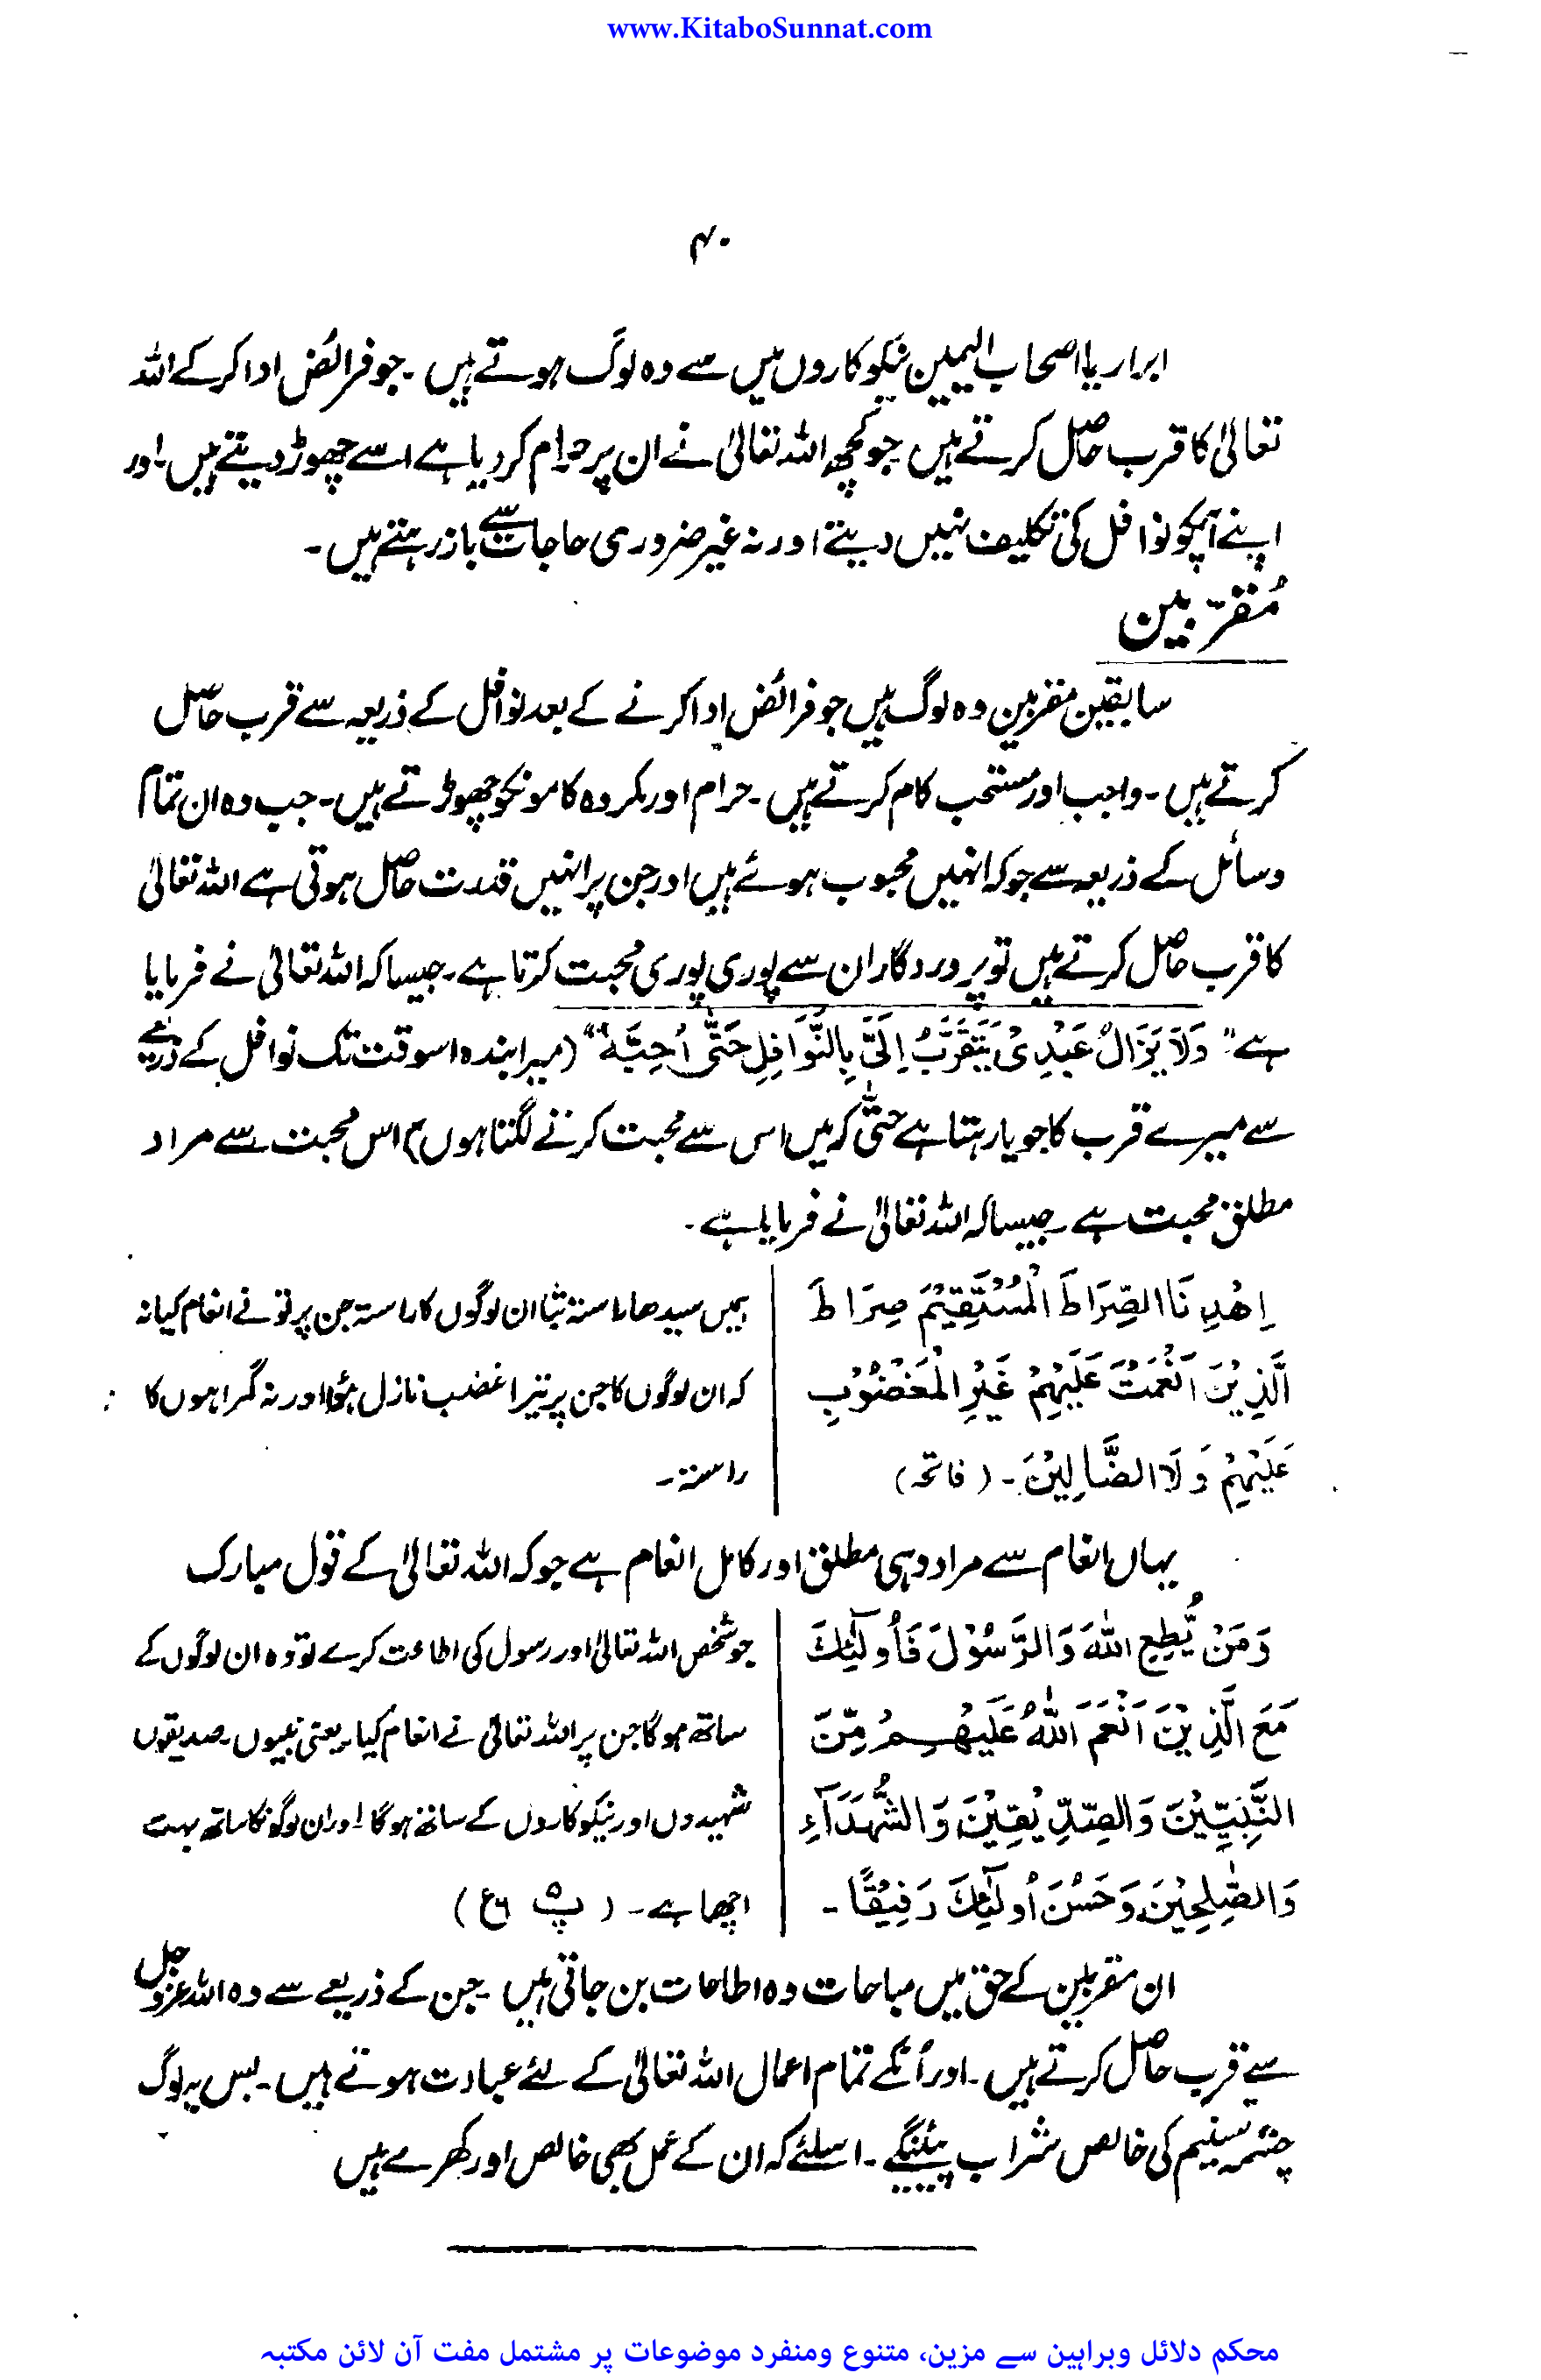 www.KitaboSunnat.com
۴۰
ابرار یا اصحاب الیمین نیکو کاروں میں سے وہ لوگ ہوتے ہیں ۔ جو فرائض ادا کر کے اللہ
تعالیٰ کا قرب حاصل کرتے ہیں جو کچھ اللہ تعالیٰ نے ان پر حرام کر دیا ہے اسے چھوڑ دیتے ہیں ۔ اور
اپنے آپکو نوافل کی تکلیف نہیں دیتے اور نہ غیر ضروری حاجات سے باز رہتے ہیں ۔
مُقرّبین
سابقین مقربین وہ لوگ ہیں جو فرائض ادا کرنے کے بعد نوافل کے ذریعہ سے قرب حاصل
کرتے ہیں ۔ واجب اور مستحب کام کرتے ہیں ۔ حرام اور مکروہ کامونکو چھوڑتے ہیں ۔ جب وہ ان تمام
وسائل کے ذریعہ سے جو کہ انہیں محبوب ہوئے ہیں اور جن پر انہیں قدرت حاصل ہوتی ہے اللہ تعالیٰ
کا قرب حاصل کرتے ہیں تو پروردگار ان سے پوری پوری محبت کرتا ہے ۔ جیسا کہ اللہ تعالیٰ نے فرمایا
ہے " وَلَا يَزَالُ عَبْدِىْ يَتَقَرَّبُ اِلَىَّ بِالنَّوَافِلِ حَتّٰى اُحِبَّهٗ " (میرا بندہ اسوقت تک نوافل کے ذریعے
سے میرے قرب کا جویا رہتا ہے حتّٰی کہ میں اس سے محبت کرنے لگتا ہوں) اس محبت سے مراد
مطلق محبت ہے ۔ جیسا کہ اللہ تعالیٰ نے فرمایا ہے ۔
اِهْدِ نَا الصِّرَاطَ الْمُسْتَقِيْمَ صِرَاطَ
الَّذِيْنَ اَنْعَمْتَ عَلَيْهِمْ غَيْرِ الْمَغْضُوْبِ
عَلَيْهِمْ وَلَا الضَّالِيْنَ ۔ (فاتحہ)
ہمیں سیدھا راستہ بتا ان لوگوں کا راستہ جن پر تو نے انعام کیا نہ
کہ ان لوگوں کا جن پر تیرا غضب نازل ہوا اور نہ گمراہوں کا
راستہ ۔
یہاں انعام سے مراد وہی مطلق اور کامل انعام ہے جو کہ اللہ تعالیٰ کے قول مبارک
وَمَنْ يُّطِعِ اللّٰهَ وَالرَّسُوْلَ فَاُولٰٓئِكَ
مَعَ الَّذِيْنَ اَنْعَمَ اللّٰهُ عَلَيْهِمْ مِّنَ
النَّبِيِّيْنَ وَالصِّدِّيْقِيْنَ وَالشُّهَدَآءِ
وَالصّٰلِحِيْنَ وَحَسُنَ اُولٰٓئِكَ رَفِيْقًا ۔
جو شخص اللہ تعالیٰ اور رسول کی اطاعت کرے تو وہ ان لوگوں کے
ساتھ ہو گا جن پر اللہ تعالیٰ نے انعام کیا یعنی نبیوں ۔ صدیقوں
شہیدوں اور نیکو کاروں کے ساتھ ہوگا اور ان لوگونکا ساتھ بہت
اچھا ہے ۔ (پ ۵ ع ۶)
ان مقربین کے حق میں مباحات وہ اطاعات بن جاتی ہیں ۔ جن کے ذریعے سے وہ اللہ عزوجل
سے قرب حاصل کرتے ہیں ۔ اور اُنکے تمام اعمال اللہ تعالیٰ کے لئے عبادت ہوتے ہیں ۔ بس یہ لوگ
چشمہ تسنیم کی خالص شراب پیئنگے ۔ اسلئے کہ ان کے عمل بھی خالص اور کھرے ہیں
محکم دلائل وبراہین سے مزین، متنوع ومنفرد موضوعات پر مشتمل مفت آن لائن مکتبہ